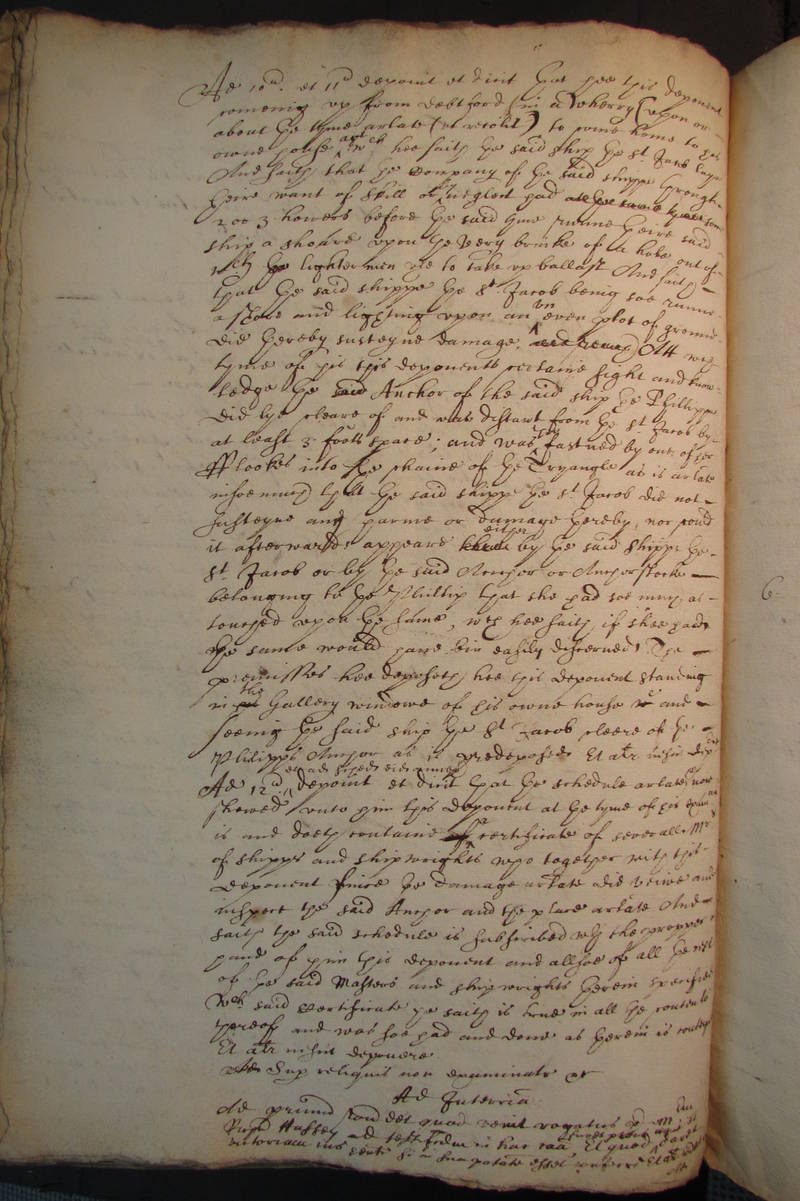 Ad 10um. et 11um deponit et dicit that hee this deponent
comeing up from Debtford (in a wherry) upon or
about the tyme arlate (ut recolit) to come home to his
owne house, hee saith the said ship the St. Jacob laye
And saith that the Company of the said shippe through
theire want of skill or neglect had
2 or 3 howers before the said tyme runne theire said
ship a shoare upon the very brinke of a hole out of
wch the lightermen use to take up ballast And saith
that the said shippe the St. Jacob being soe runne
a shoare and lighting upon an un even plot of ground
did thereby susteyne damage, Att wch
tyme of his this deponents certaine sight and know-
ledge the said Anchor of the said ship the Phillipp
did lye cleare of and was distant from the St. Jacob by
at least 3 foote space; and was fastned by one of her
fflookes into the chaine of the Tryangle as is arlate
insoemuch that the said shippe the St. Jacob did not
susteyne any harme or damage thereby, nor could
it afterwards appeare either by the said shippe the
St. Jacob or by the said Anchor or Anchorstocke
belonging to the Phillip that she had soe much as
touched upon the same, wch hee saith if shee had
the same would have bin easily discerned. The
premisses hee deposeth hee this deponent standing
in the Gallery windowe of his owne house and
seeing the said ship the St. Jacob cleere of the
Philipps Anchor as is predeposed Et aliter nescit dep
Ad 12um deponit et dicit that the schedule arlate now
shewed unto him this deponent at the tyme of his exam
is and doth containe certificate of severall Mrs
of shipps and shipwrights who together with this
deponent since the damage arlate did veiwe and
inspect the said Anchor and the place arlate And
saith the said schedule is subscribed wth the propper
hand of him this deponent and allsoe of all the rest
of the said Masters and shipwrights therein specified
Wch said certificate he saith is true in all the contents
thereof and was soe had and done as therein is conteyned
Et aliter nescit deponere
Sup reliquis non examinatr
Ad Interria
Ad primum rondet quod venit rogatus
Hussey ad testificandum in hac caa Et quod
victoriam